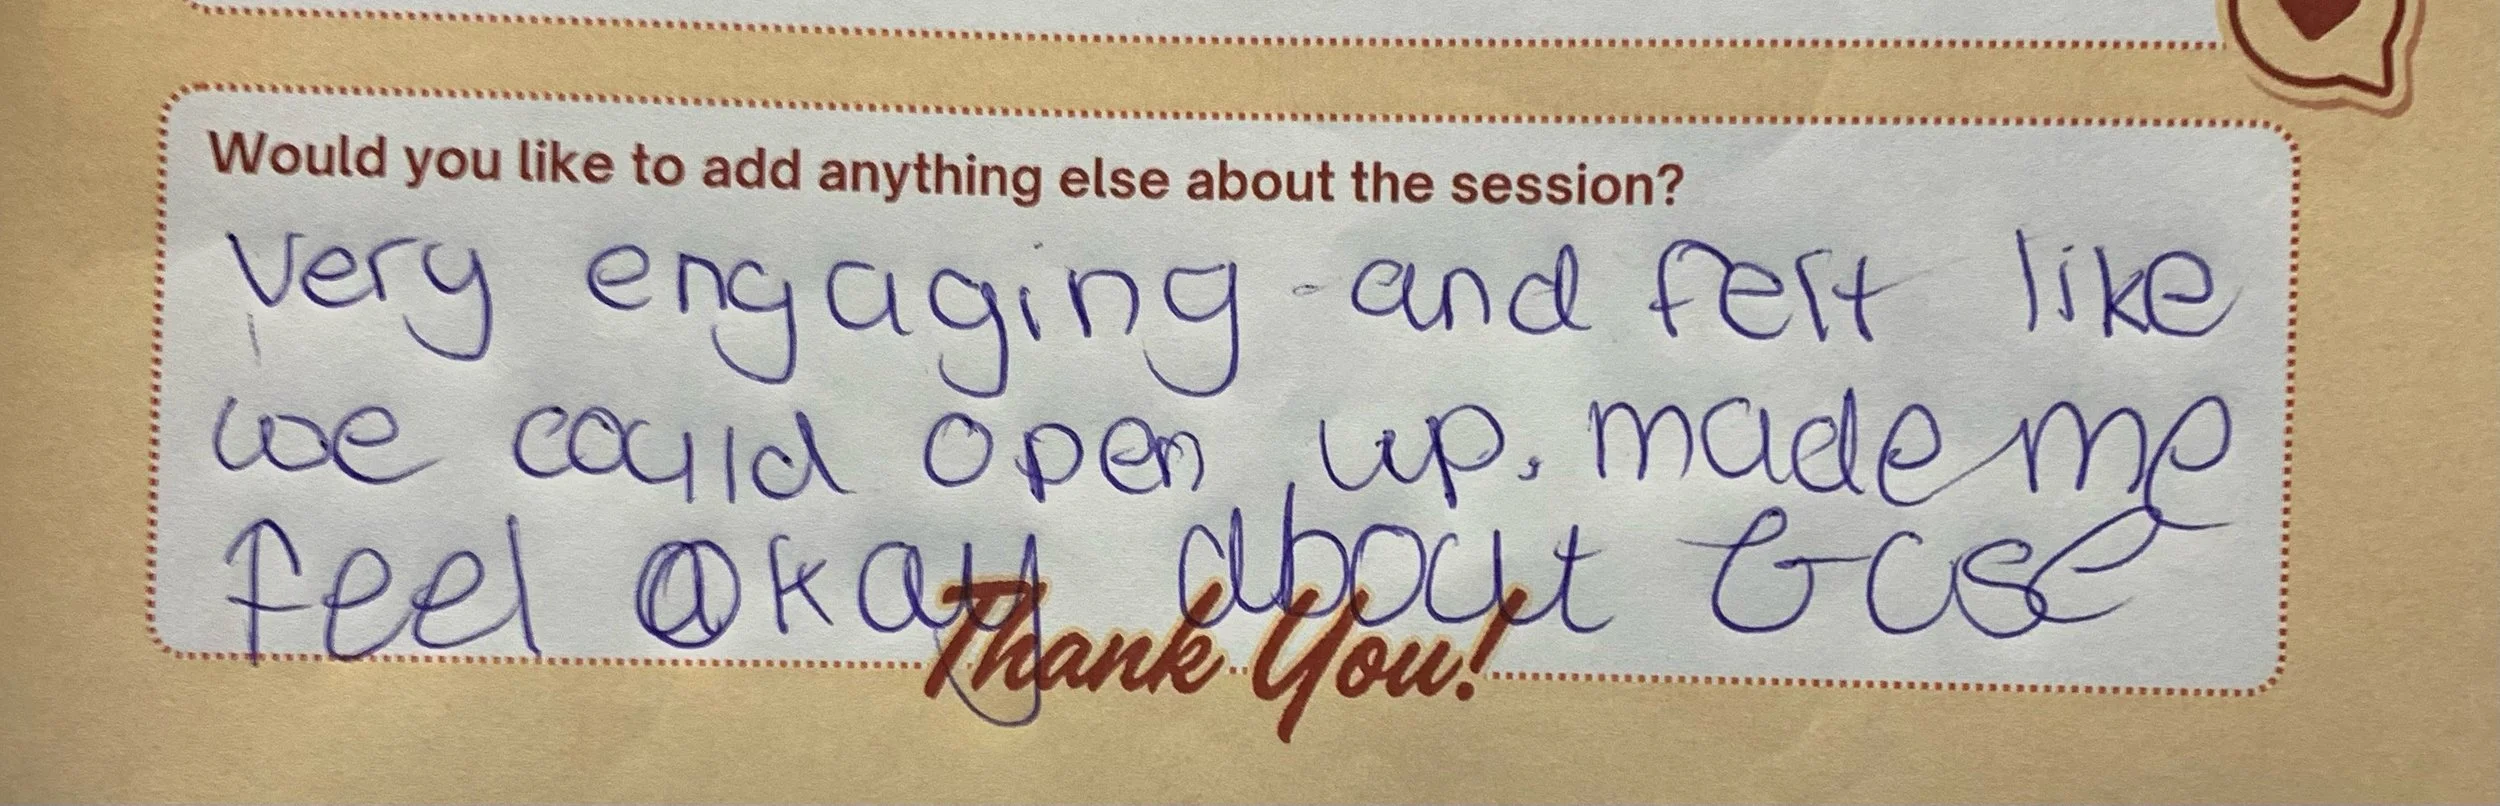 Would you like to add anything else about the session?
Very engaging and felt like
we could open up. made me
feel okay about Gcse
Thank You!